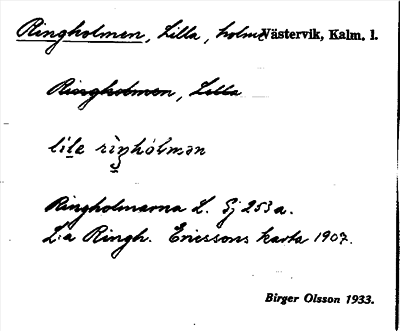 Ringholmen, Lilla, holme Västervik, Kalm. l.
Ringholmen, Lilla
lila riŋhólmən
Ringholmarna L. Sj 253 a.
L:a Ringh. Ericssons karta 1907.
Birger Olsson 1933.